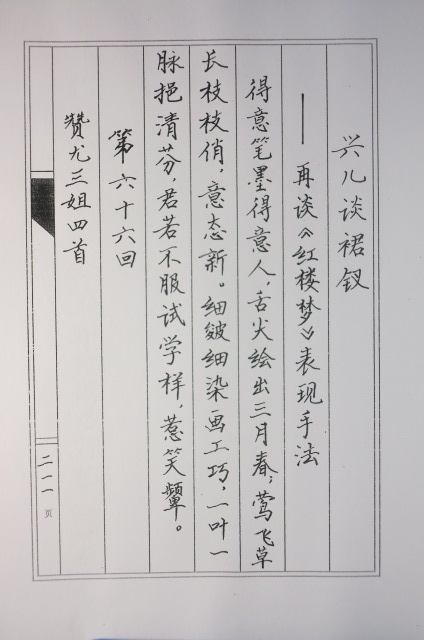 兴儿谈裙钗
——再谈《红楼梦》表现手法
得意笔墨得意人，舌尖绘出三月春；莺飞草
长枝枝俏，意态新。细皴细染画工巧，一叶一
脉挹清芬，君若不服试学样，惹笑颦。
第六十六回
赞尤三姐四首
二一一页